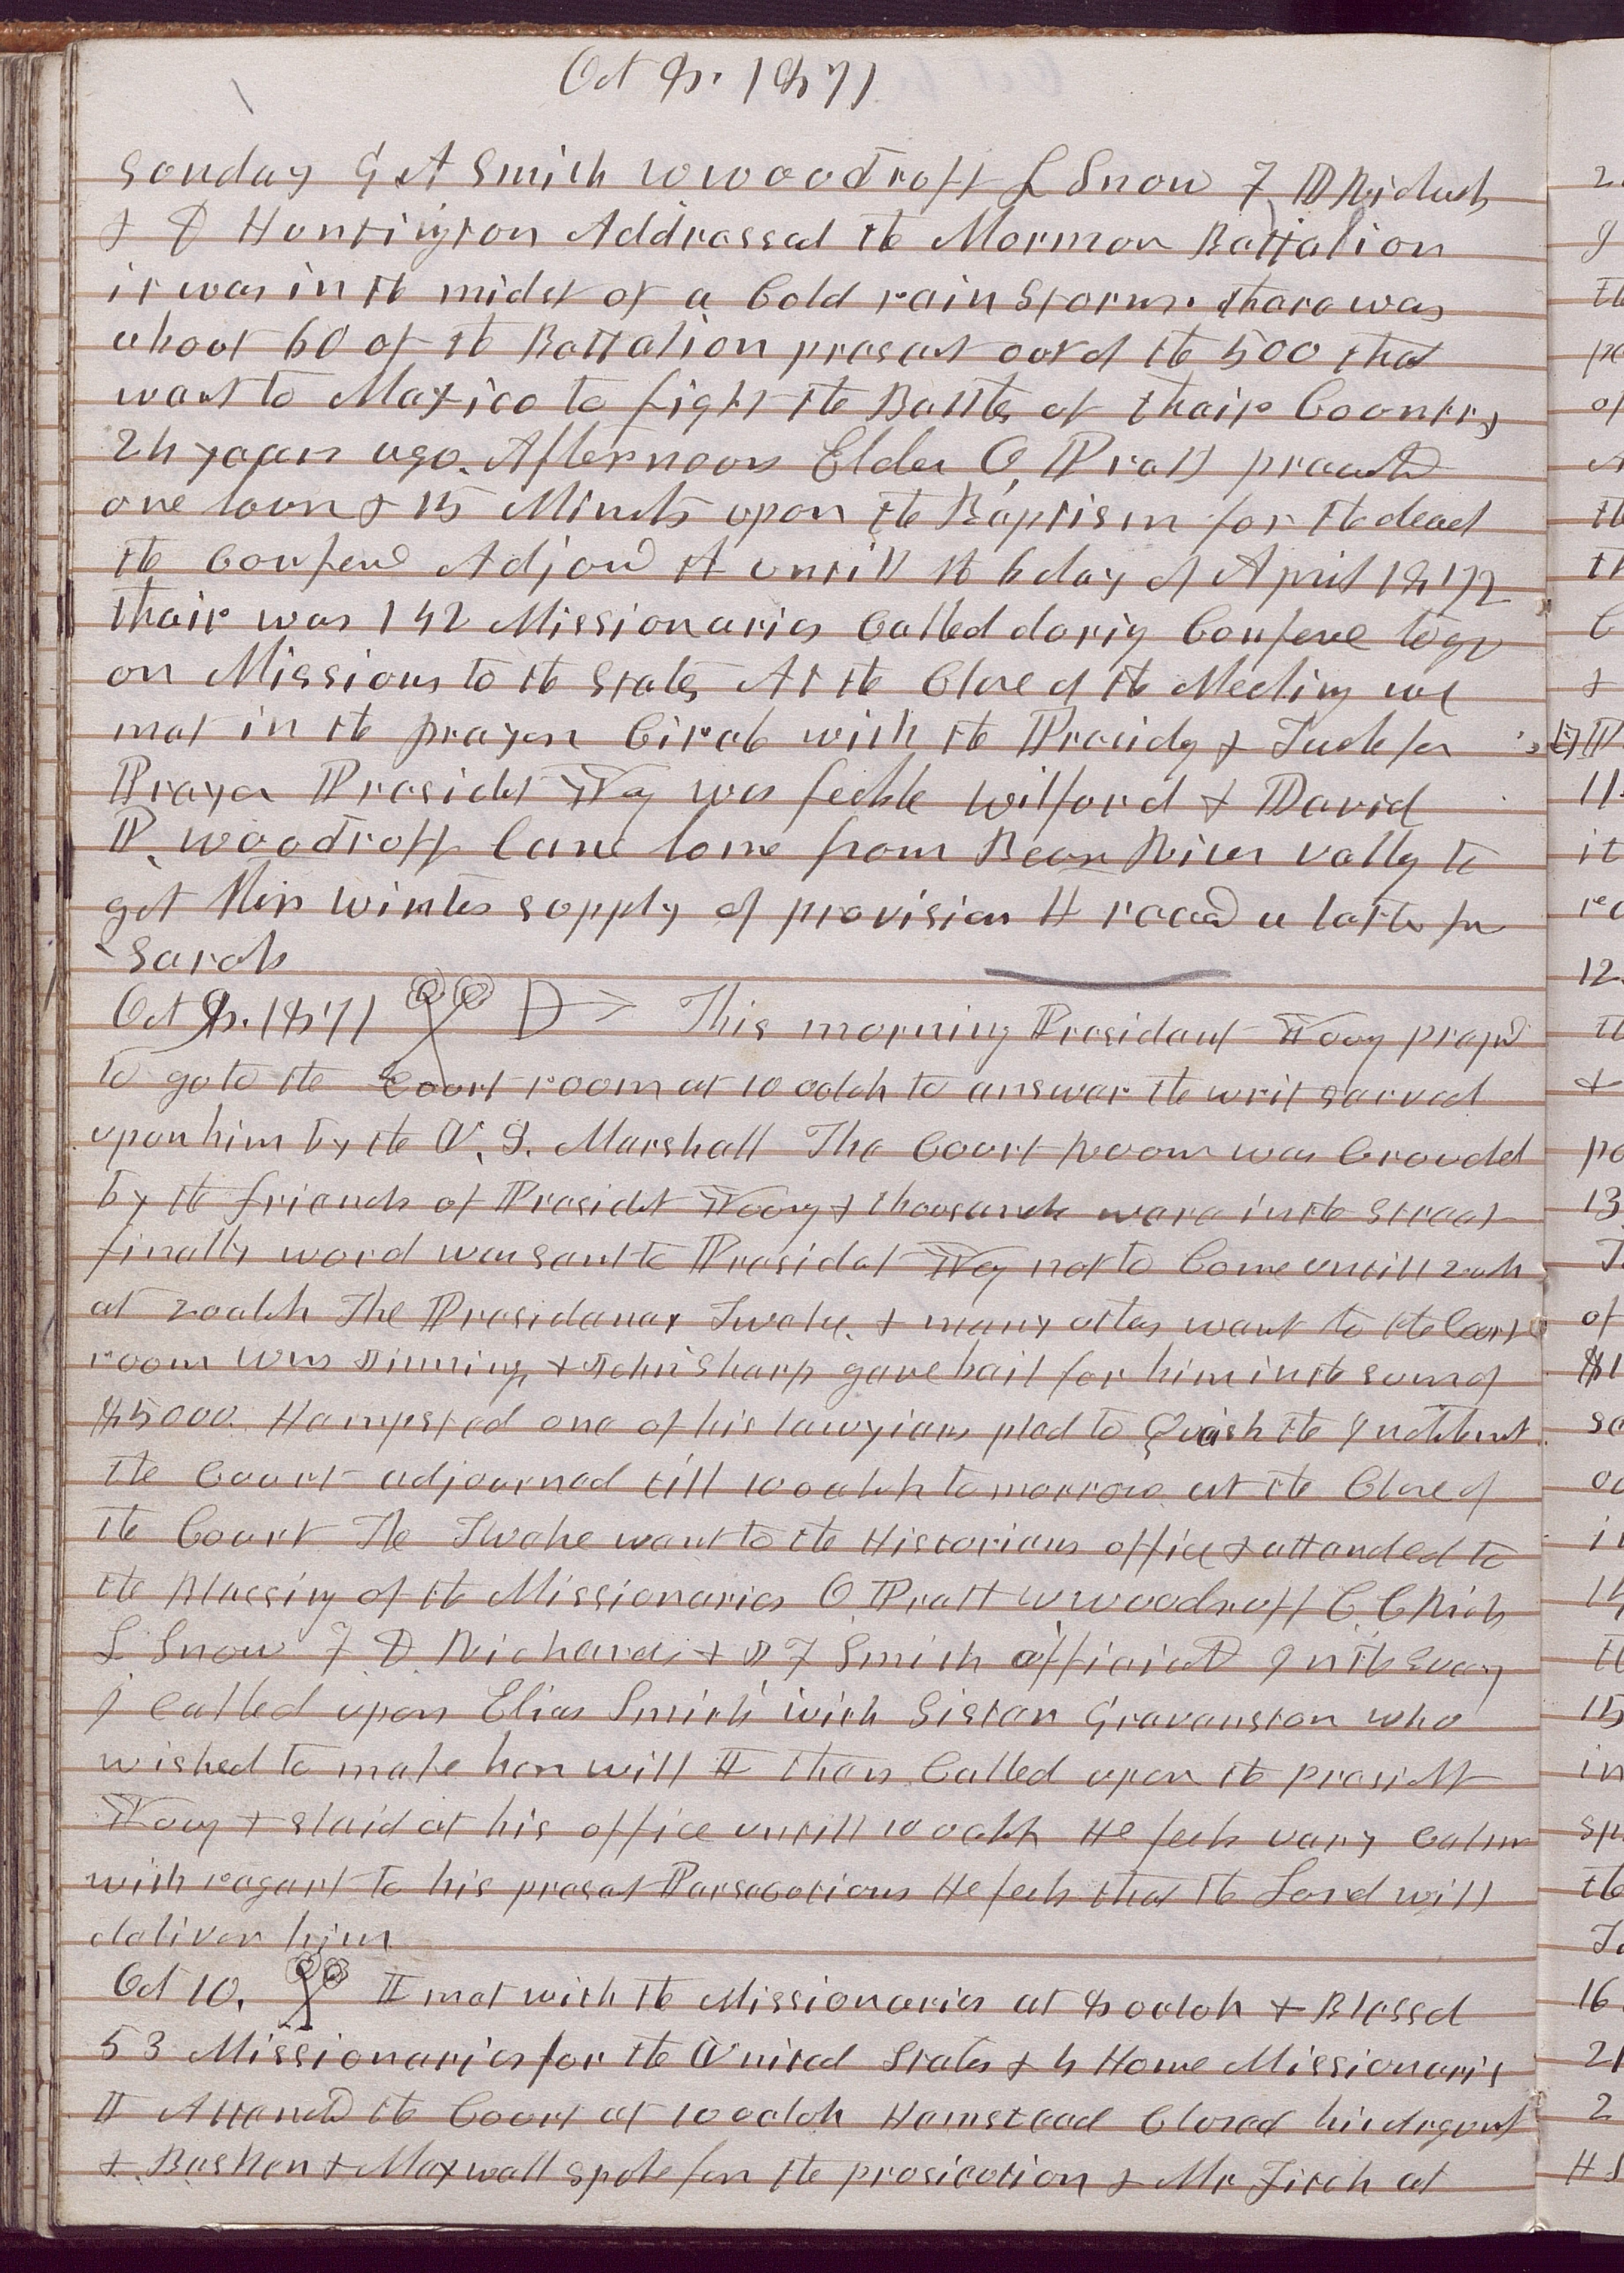 Oct 8. 1871
Sunday G A Smith W Woodruff L Snow F D Richards
& D Huntington Addressed the Mormon Battalion
it was in the midst of a Cold rain Storm. there was
about 60 of the Battalion present out of the 500 that
went to Mexico to fight the Battles of their Country
24 years ago. Afternoon Elder O, Pratt preachd
one hour & 15 Minuts upon the Baptism for the dead
the Conferenc Adjournd untill the 6 day of April 1872
thair was 142 Missionaries Called during Conference to go
on Missions to the States At the Close of the Meeting we
met in the prayer Circle with the Presidency & Twelve for
Prayer President Young was feeble Wilford & David
P. Woodruff Came home from Bear River vally to
get their winters supply of provision I recevd a letter for
Sarah
Oct 9. 1871 This morning President Young prepared
to go to the Court room at 10 oclok to answer the writ served
upon him by the U. S. Marshall The Court Room was Crouded
by the friends of President Young & thousands were in the Street
finally word was sent to President Young not to Come untill 2 oclok
at 2 oclok The Presidency Twelve & many others went to the Court
room Wm Jinning, & John Sharp gave bail for him in the sum of
$5000. Hempsted one of his lawyiers pled to Quish the Inditement
the Court adjourned till 10 oclok to morrow at the Close of
the Court The Twelve went to the Historians office & attended to
the Blessing of the Missionaries O Pratt W Woodruff C C Rich
L Snow F D Richards & J F Smith officiated In the Evening
I Called upon Elias Smith with Sister Gravenston who
wished to make her will I then Called upon the president
Young & staid at his office untill 10 oclok He feels very Calm
with regard to his present Persecutions He feels that the Lord will
deliver him
Oct 10. I met with the Missionaries at 8 oclok & Blessed
53 Missionaries for the United States & 4 Home Missionaris
I Attended the Court at 10 oclok Hemstead Closed his argument
& Basken & Maxwell spoke for the prosicution & Mr Fitch at